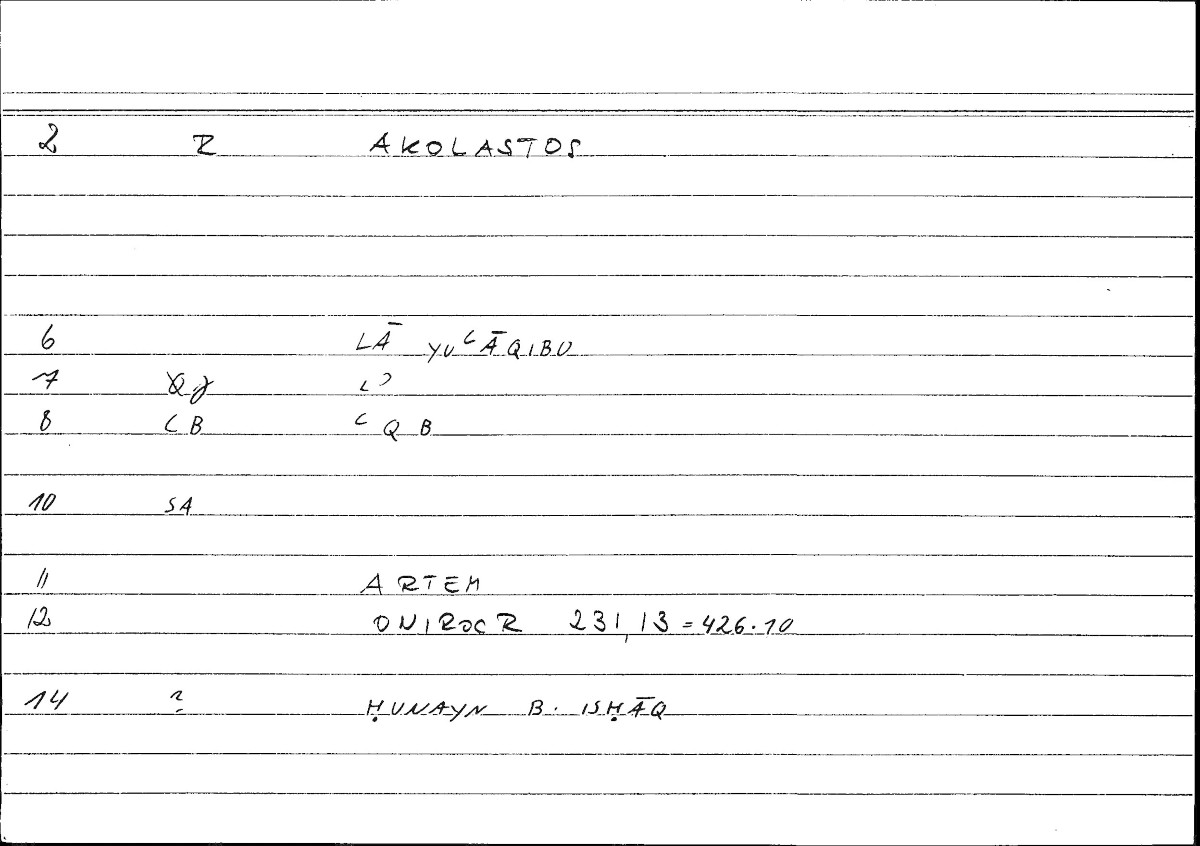 2 R AKOLASTOS
6 LĀ YUʿĀQIBU
7 Lʾ
8 CB ʿQB
10 SA
11 ARTEM
12 ONIROCR 231,13 = 426.10
14 ? ḤUNAYN B. ISḤĀQ